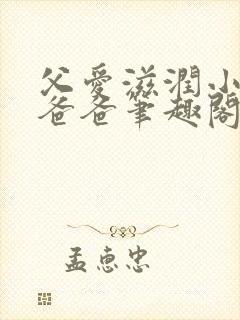 父愛滋潤小
爸爸筆趣閣
孟惠忠